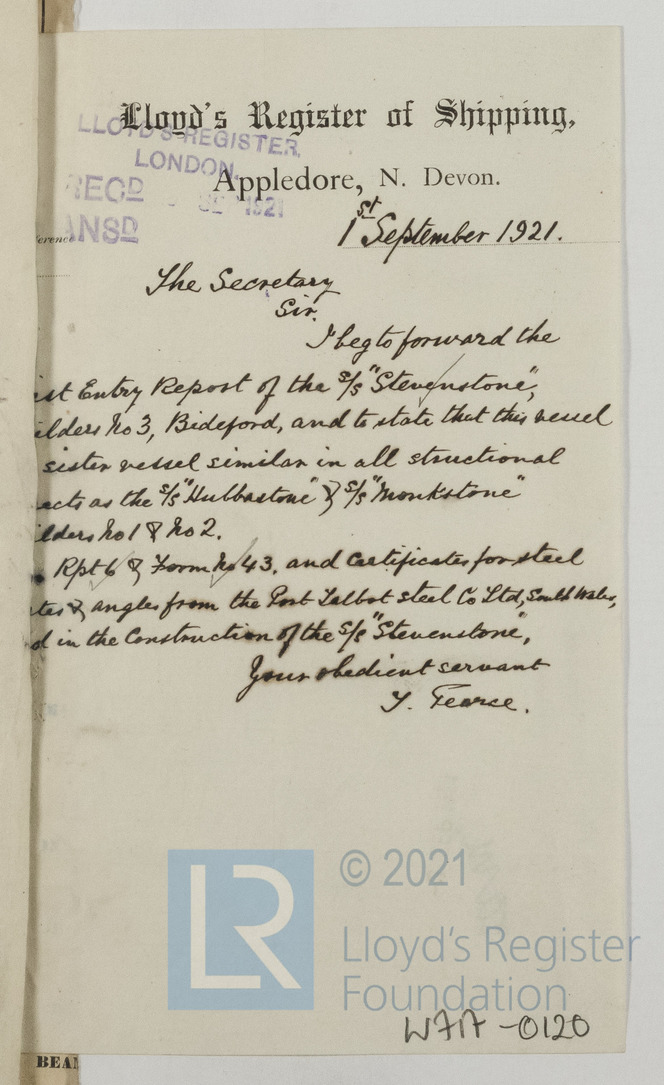 Lloyd's Register of Shipping,
LLOYD'S REGISTER,
LONDON.
Appledore, N. Devon.
REC'D 1921
ANSD
erence
1st September 1921.
The Secretary
Sir.
I beg to forward the
st Entry Report of the s/s "Stevenstone",
ilders No 3, Bideford, and to state that this vessel
sister vessel similar in all structional
ects as the s/s "Hubbastone" & s/s "Monkstone"
ilders No 1 & No 2.
Rpt 6 & Form No 43. and Certificates for steel
tes & angles from the Port Talbot Steel Co Ltd, South Wales,
d in the Construction of the s/s "Stevenstone",
Your obedient servant
Pearce.
LR
© 2021
Lloyd's Register
Foundation
W717-0120
BEA